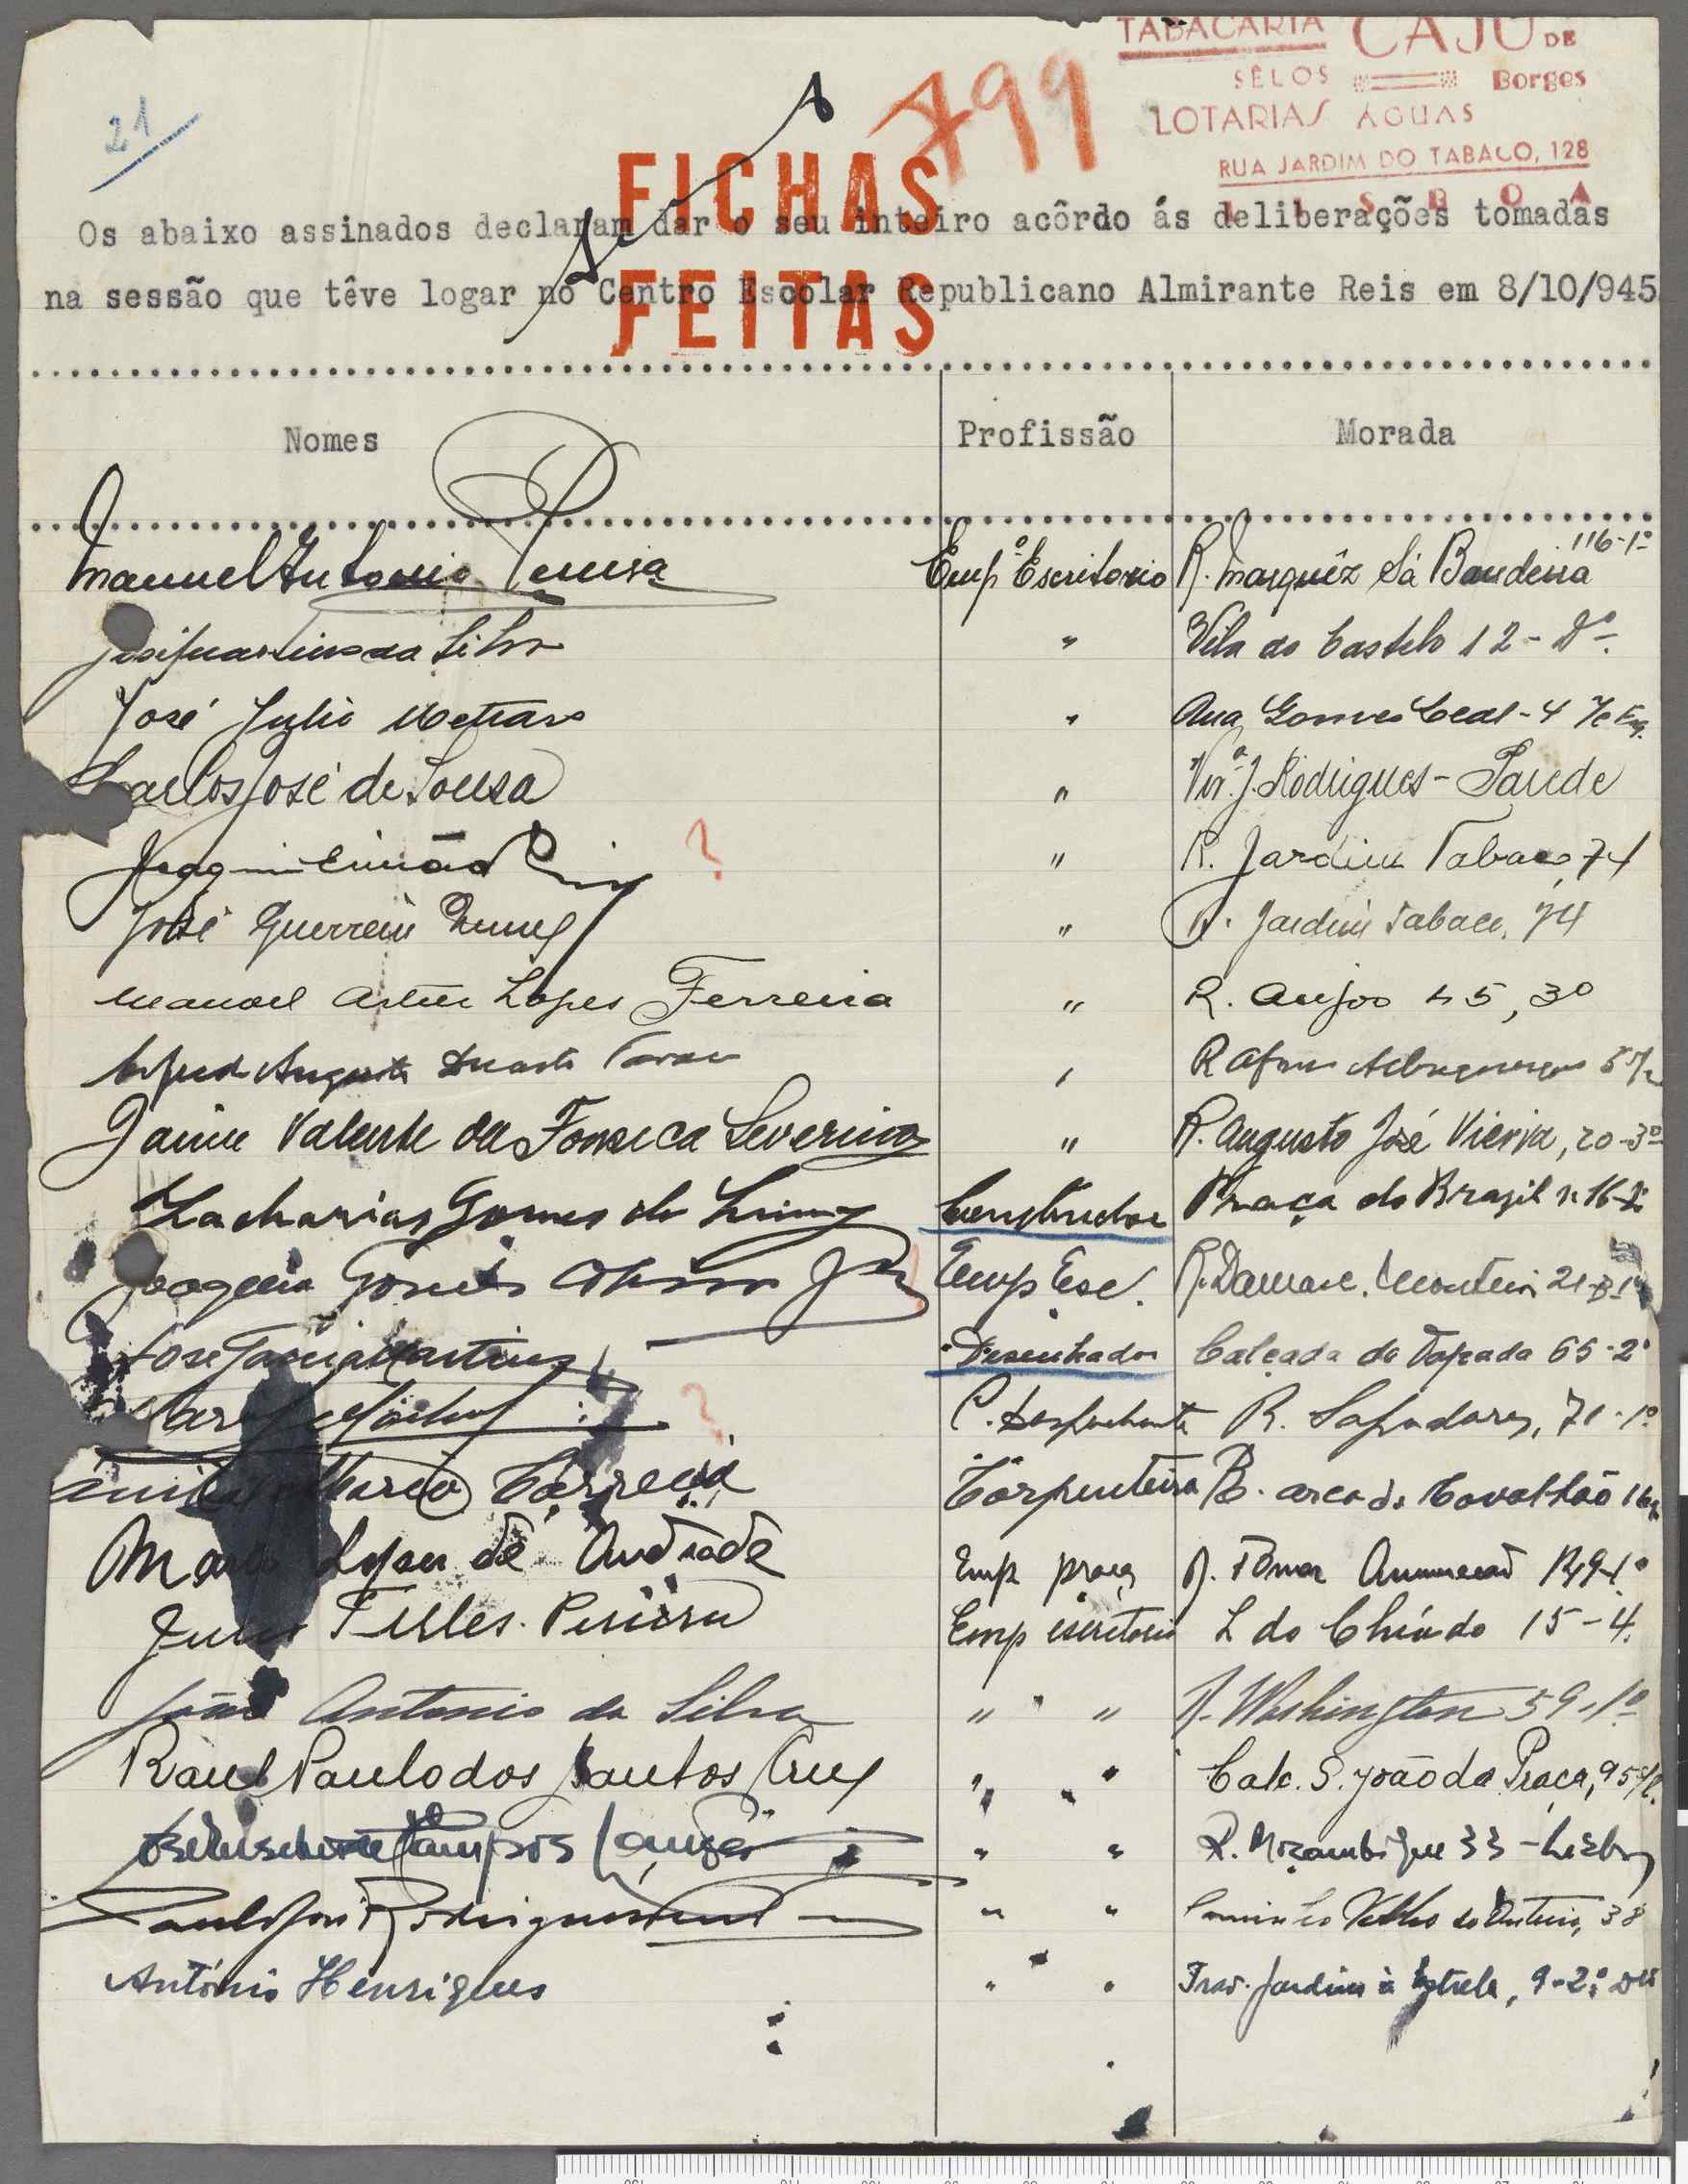 TABACARIA CAJU DE
SÊLOS Borges
LOTARIAS ÁGUAS
RUA JARDIM DO TABACO, 128
LISBOA
21
799
FICHAS
FEITAS
Os abaixo assinados declaram dar o seu inteiro acôrdo ás deliberações tomadas
na sessão que têve logar no Centro Escolar Republicano Almirante Reis em 8/10/945
Nomes Profissão Morada
Manuel Antonio Emp.º Escritorio R. Marquêz Sá Bandeira 116-1º
Martins da Silva " Vila do Castelo 12-
José Julio " Rua Gomes Leal - 4 r/c Esq.
Carlos José de Sousa " Vivª J. Rodrigues - Parede
Joaquim ? " R. Jardim Tabaco, 74
José Guerreiro " R. Jardim Tabaco, 74
Manoel Artur Lopes Ferreira " R. Anjos 45, 3º
Augusto Duarte " R Afonso Albuquerque
Jaime Valente da Fonseca Severino " R. Augusto José Vieira, 20-3º
Zacharias Gomes de Construdor Praça do Brazil n 16-2º
Joaquim Gomes Emp Esc. R. Damasc. Monteiro 21
José Martins Desenhador Calçada da Tapada 65-2º
? C. Despachante R. Sapadores, 71-1º
Mario Correia Carpenteiro B. arco do Carvalhão
Mario de Andrade Emp praça R. Tomaz Anunciação
Julio Telles Pereira Emp escritorio L do Chiado 15-4.
João Antonio da Silva " " R. Washington 59-1º
Raul Paulo dos Santos Cruz " " Calc. S. João da Praça, 95
Campos " " R. Moçambique 33 - Lisboa
Paulo José Rodrigues " " Caminho Velho do Outeiro, 38
António Henriques " " Trav. Jardim à Estrela, 9-2º